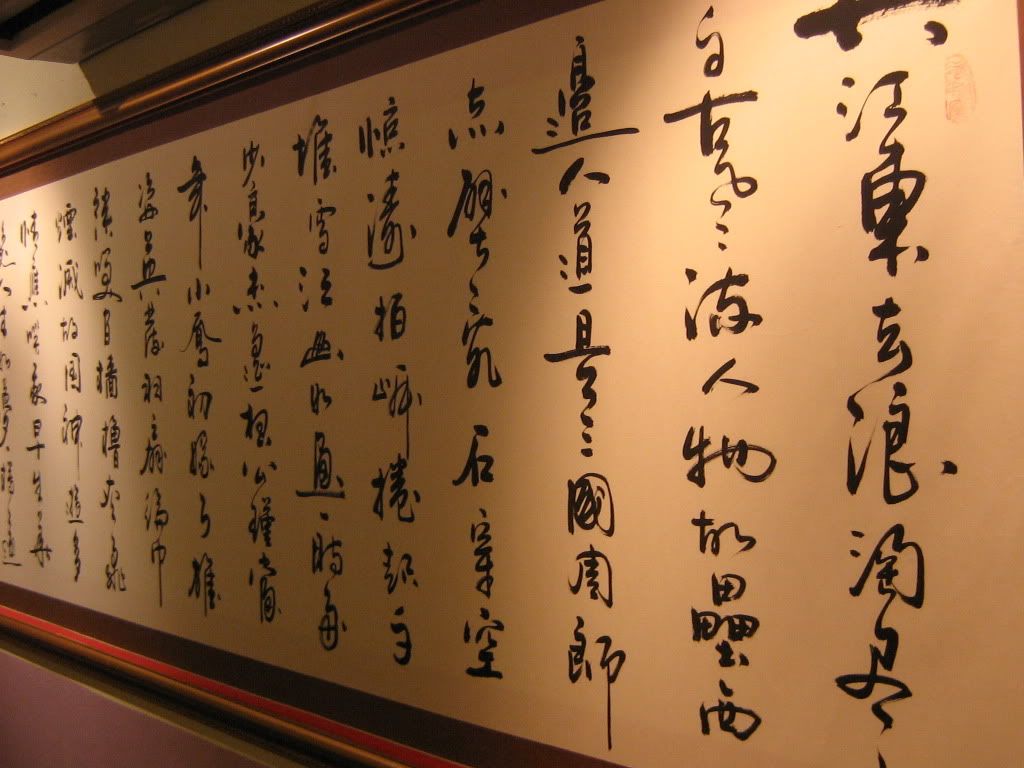 大江東去浪淘尽
千古風流人物故壘西
邊人道是三國周郎
赤壁乱石穿空
惊濤拍岸捲起千
堆雪江山如画一時多
少豪杰遥想公瑾當
年小喬初嫁了雄
姿英發羽扇綸巾
談笑間檣櫓灰飛
煙滅故国神遊多
情應笑我早生華
人生如夢一樽還